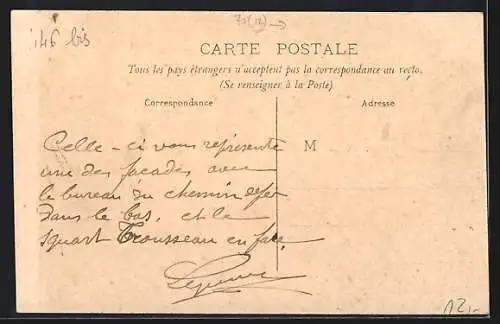 75(12)
146 bis
CARTE POSTALE
Tous les pays étrangers n'acceptent pas la correspondance au recto.
(Se renseigner à la Poste)
Correspondance
Adresse
M
Celle-ci vous représente
une des façades avec
le bureau du chemin de fer
dans le bas, et le
squart Trousseau en face
12,-